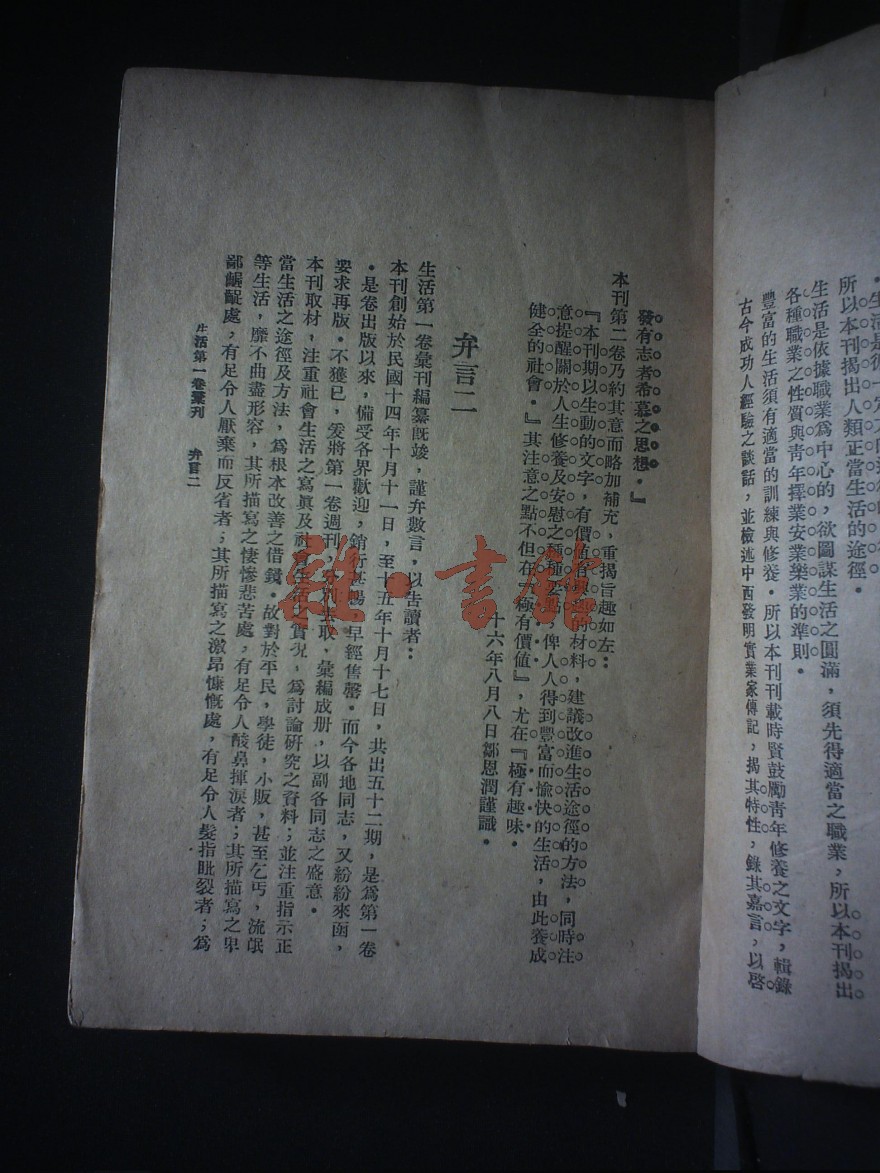 所以本刊揭出人類正當生活的途徑。
生活是依據職業爲中心的，欲圖謀生活之圓滿，須先得適當之職業，所以本刊揭出
各種職業之性質與青年擇業安業樂業的準則。
豐富的生活須有適當的訓練與修養。所以本刊刊載時賢鼓勵靑年修養之文字，輯錄
古今成功人經驗之談話，並檢述中西發明實業家傳記，揭其特性，錄其嘉言，以啓
發有志者希慕之思想。』
本刊第二卷乃約其意而略加補充，重揭旨趣如左：
『本刊期以生動的文字，有價值有興趣的材料，建議改進生活途徑的方法，同時注
意提醒關於人生修養及安慰之種種要點，俾人人得到豐富而愉快的生活，由此養成
健全的社會。』其注意之點不但在『極有價値』，尤在『極有趣味。
十六年八月八日鄒恩潤謹識。
弁言二
生活第一卷彙刊編纂旣竣，謹弁數言，以告讀者：
本刊創始於民國十四年十月十一日，至十五年十月十七日，共出五十二期，是爲第一卷
。是卷出版以來，備受各界歡迎，銷行甚暢，早經售罄。而今各地同志，又紛紛來函，
要求再版。不獲已，爰將第一卷週刊，去取，彙編成册，以副各同志之盛意。
本刊取材，注重社會生活之寫眞及社會生活之實况，爲討論硏究之資料；並注重指示正
當生活之途徑及方法，爲根本改善之借鏡。故對於平民，學徒，小販，甚至乞丐，流氓
等生活，靡不曲盡形容，其所描寫之悽慘悲苦處，有足令人酸鼻揮淚者；其所描寫之卑
鄙齷齪處，有足令人厭棄而反省者；其所描寫之激昂慷慨處，有足令人髮指眦裂者；爲
生活第一卷彙刊　弁言二
雜·書館